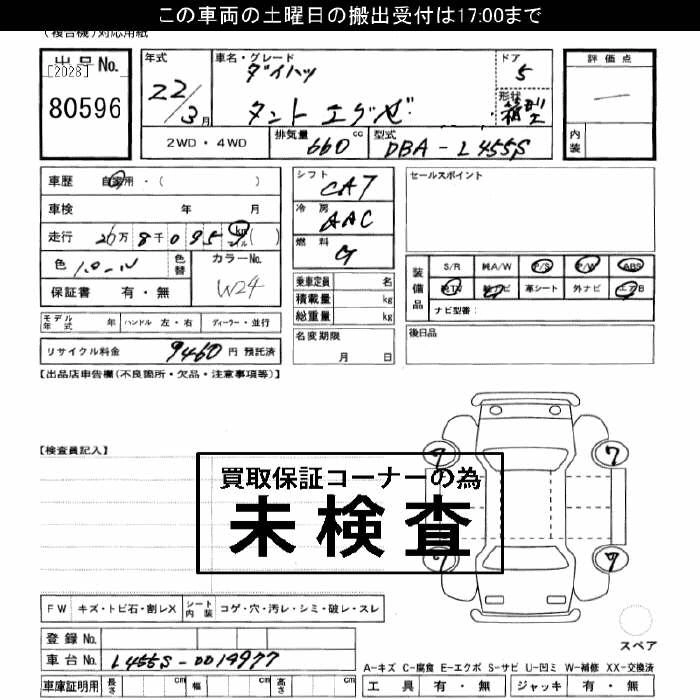 この車両の土曜日の搬出受付は17:00まで
(複合機)対応用紙
出品No.
[2028]
80596
年式
22/3月
車名・グレード
ダイハツ
タント エグゼ
ドア
5
形状
箱型
評価点
内装
2WD・4WD
排気量 660 cc
型式 DBA-L455S
車歴 自家用・( )
車検 年 月
走行 26万8千0959 km マイル ( )
色 パール
色替
カラーNo.
W24
保証書 有・無
シフト
CAT
冷房
AAC
燃料
G
乗車定員 名
積載量 kg
総重量 kg
名変期限
月 日
セールスポイント
装備品
S/R 純A/W P/S P/W ABS
純TV 純ナビ 革シート 外ナビ エアB
ナビ型番:
後日品
モデル年式 年 ハンドル 左・右 ディーラー・並行
リサイクル料金 9460 円 預託済
【出品店申告欄(不良箇所・欠品・注意事項等)】
【検査員記入】
買取保証コーナーの為
未検査
7 7
7 7
FW キズ・トビ石・割レX シート内装 コゲ・穴・汚レ・シミ・破レ・スレ
登録No.
車台No. L455S-0019977
スペア
A-キズ C-腐食 E-エクボ S-サビ U-凹ミ W-補修 XX-交換済
車庫証明用 長さ cm 幅 cm 高さ cm
工具 有・無 ジャッキ 有・無